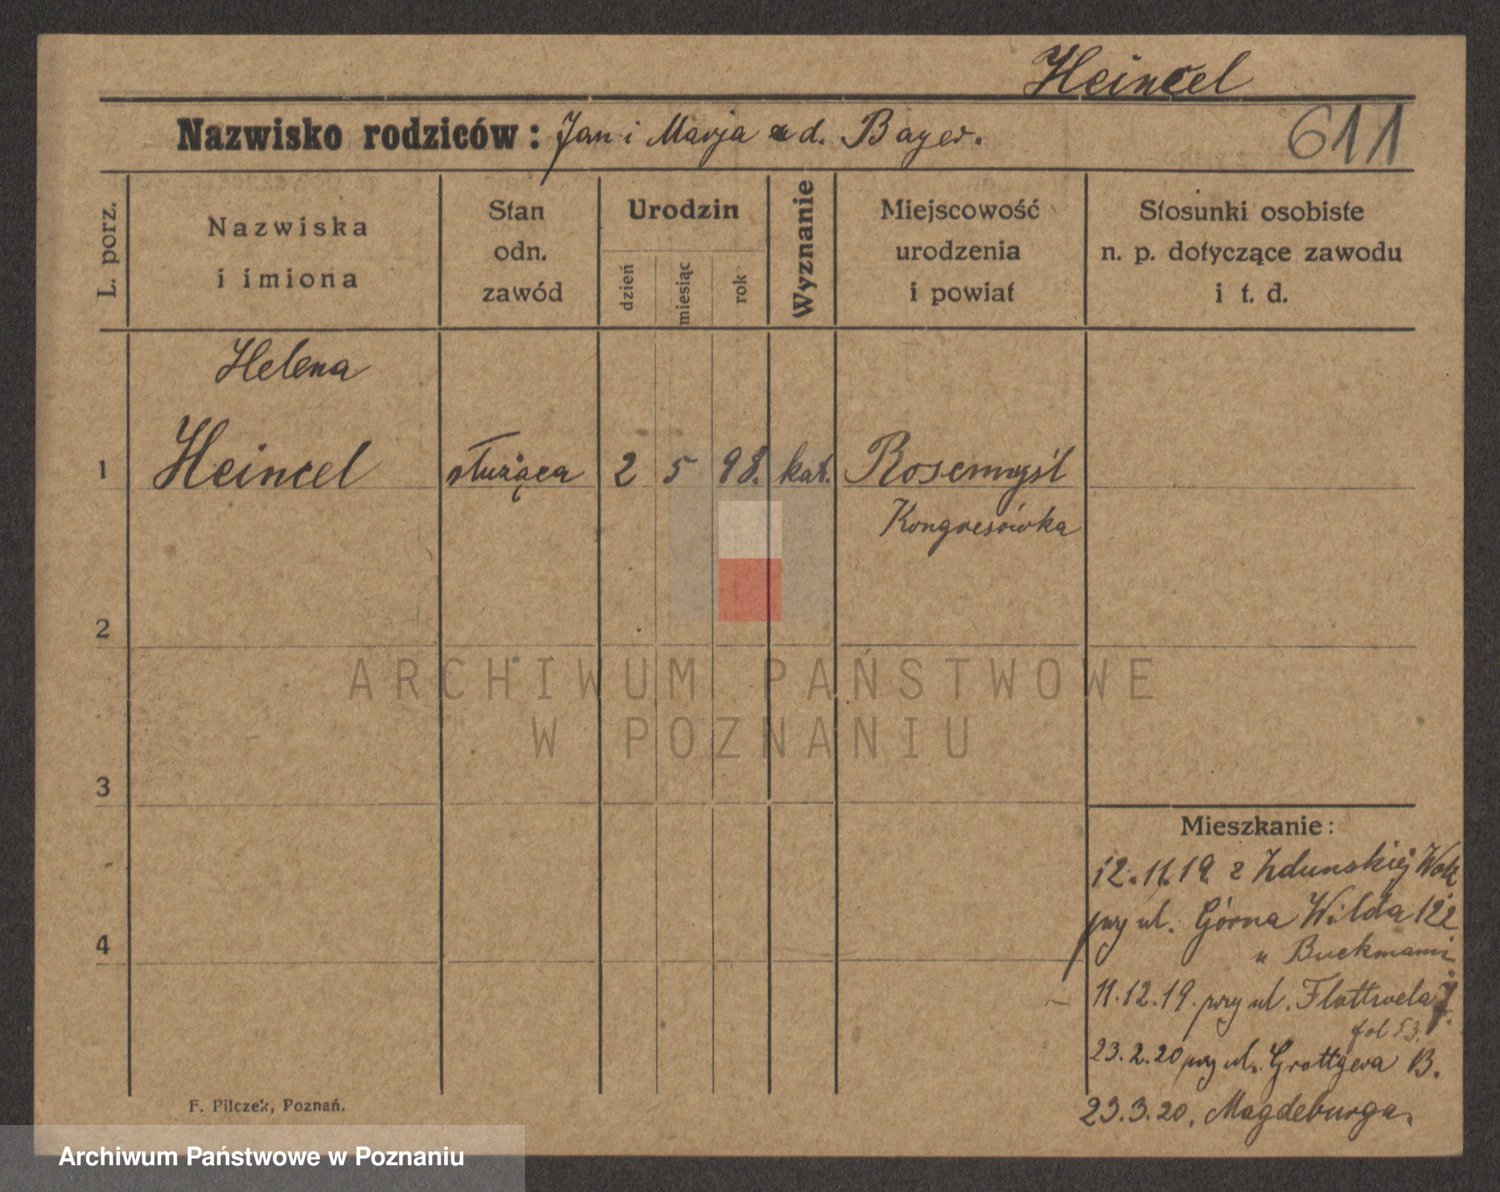 Heincel
Nazwisko rodziców: Jan i Marja z d. Bayer.
611
L. porz.
Nazwiska
i imiona
Stan
odn.
zawód
Urodzin
dzień
miesiąc
rok
Wyznanie
Miejscowość
urodzenia
i powiat
Stosunki osobiste
n. p. dotyczące zawodu
i t. d.
Helena
1 Heincel służąca 2 5 98. kat. Rosemyśl
Kongresówka
2
ARCHIWUM PAŃSTWOWE
W POZNANIU
3
Mieszkanie:
12.11.19. z Zduńskiej Woli
przy ul. Górna Wilda 122
u Buckmann
4
11.12.19. przy ul. Flottwela 7.
fol 53.
23.2.20 przy ul. Grottgera B.
23.3.20. Magdeburga.
F. Pilczek, Poznań.
Archiwum Państwowe w Poznaniu